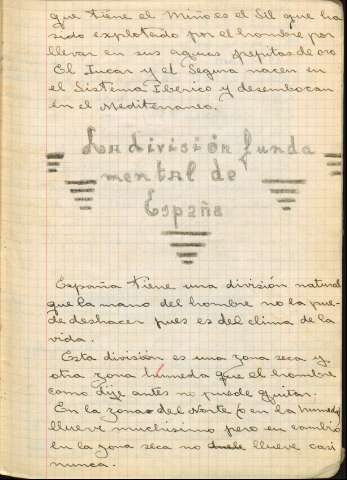 que tiene el Miño es el Sil que ha
sido explotado por el hombre por
llevar en sus aguas pepitas de oro
El Jucar y el Segura nacen en
el Sistema Iberico y desembocan
en el Mediterraneo.
La división funda
mental de
España
España tiene una división natural
que la mano del hombre no la pue-
de deshacer pues es del clima de la
vida.
Esta división es una zona seca y
otra zona humeda que el hombre
como dije antes no puede quitar.
En la zona del Norte (o en la humeda)
llueve muchisimo pero en cambio
en la zona seca no llueve casi
nunca.